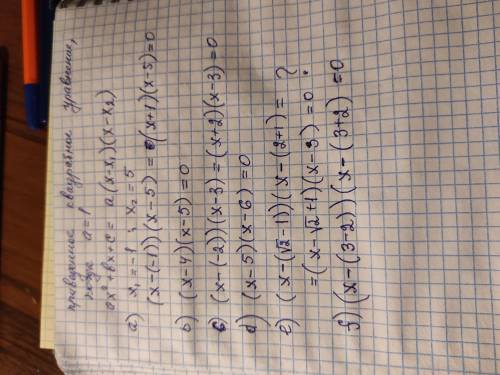 приведенное квадратное уравнение,
когда a = 1
ax² + bx + c = a(x-x₁)(x-x₂)
a) x₁ = -1 ; x₂ = 5
(x-(-1))(x-5) = (x+1)(x-5)=0
b) (x-4)(x-5)=0
в) (x-(-2))(x-3)=(x+2)(x-3)=0
d) (x-5)(x-6)=0
e) (x-(√2-1))(x-(2+1)= ?
=(x-√2+1)(x-3)=0
f) (x-(3-2))(x-(3+2)=0